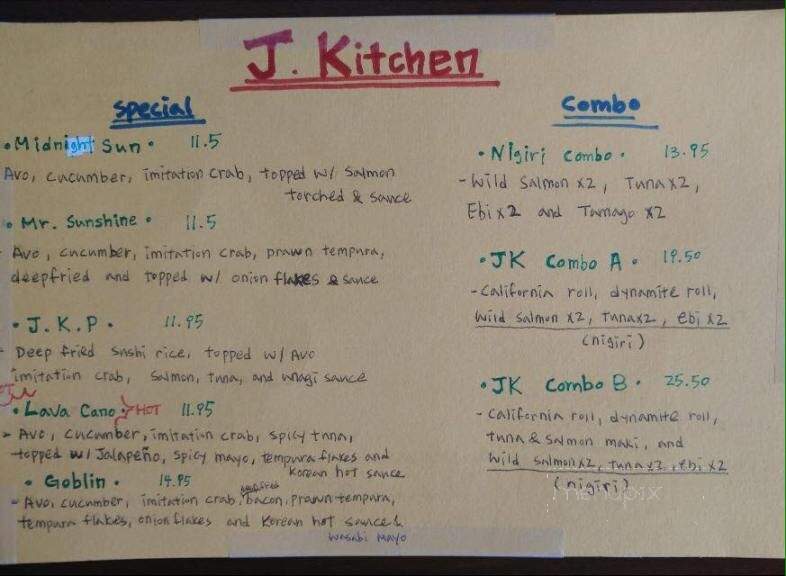 J. Kitchen
Special
• Midnight Sun • 11.5
Avo, cucumber, imitation crab, topped w/ salmon
torched & sauce
• Mr. Sunshine • 11.5
- Avo, cucumber, imitation crab, prawn tempura,
deepfried and topped w/ onion flakes & sauce
• J.K.P • 11.95
- Deep fried sushi rice, topped w/ Avo
imitation crab, salmon, tuna, and unagi sauce
• Lava Cano • HOT 11.95
- Avo, cucumber, imitation crab, spicy tuna,
topped w/ Jalapeño, spicy mayo, tempura flakes and
Korean hot sauce
• Goblin • 14.95
- Avo, cucumber, imitation crab, bacon, prawn tempura,
tempura flakes, onion flakes and Korean hot sauce &
wasabi mayo
Combo
• Nigiri combo • 13.95
- Wild Salmon x2, Tuna x2,
Ebi x2 and Tamago x2
• JK Combo A • 19.50
- California roll, dynamite roll,
wild salmon x2, tuna x2, ebi x2
(nigiri)
• JK Combo B • 25.50
- California roll, dynamite roll,
tuna & salmon maki, and
wild salmon x2, tuna x2, ebi x2
(nigiri)
menupix